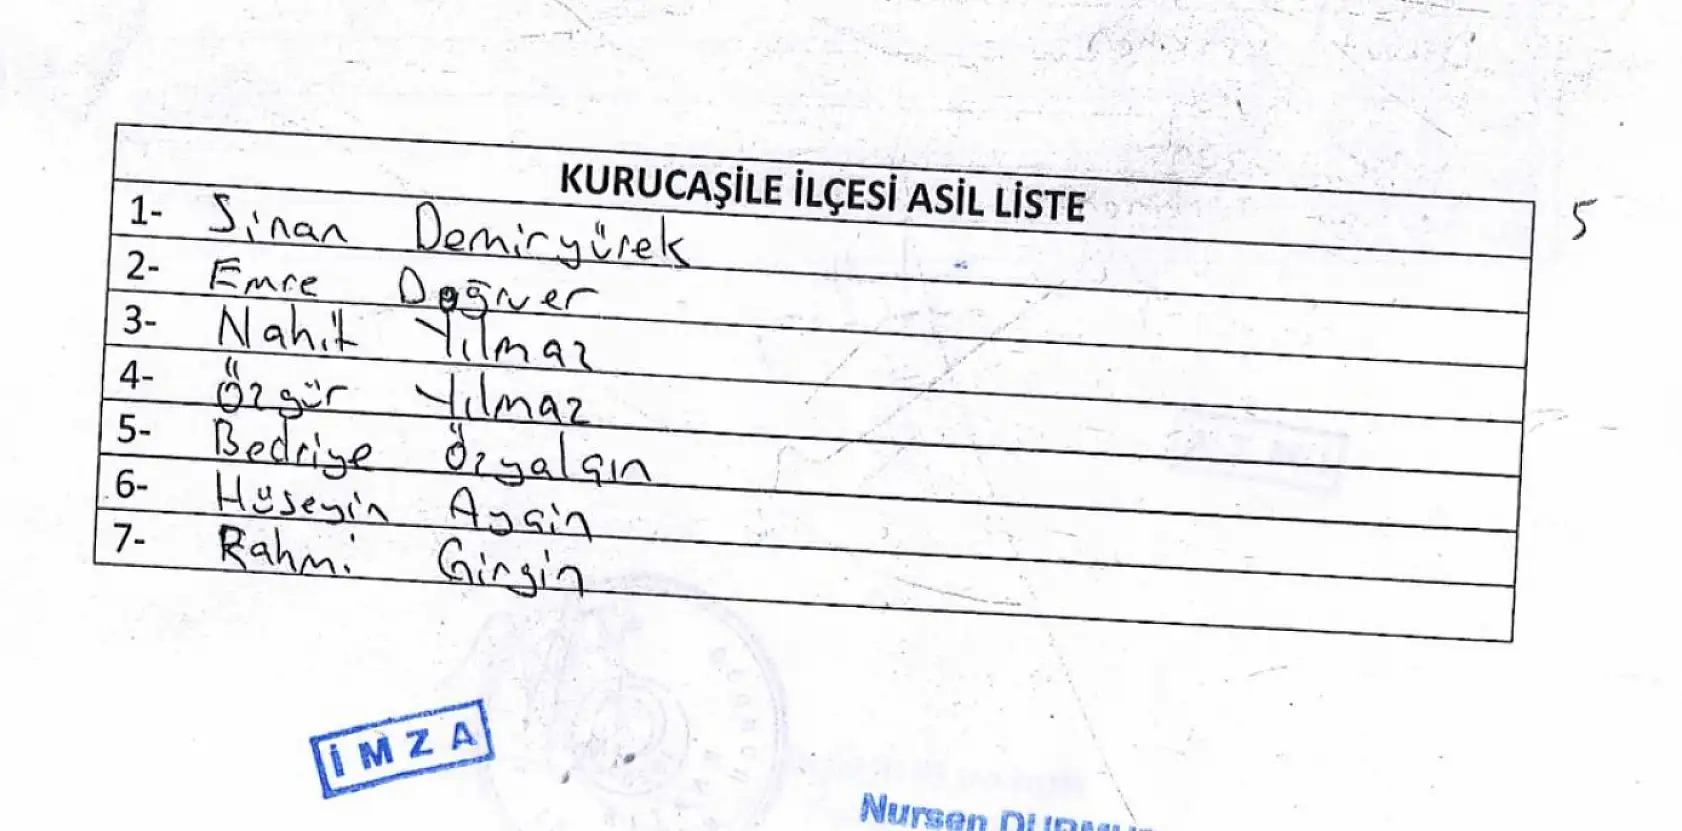 KURUCAŞİLE İLÇESİ ASİL LİSTE
5
1- Sinan Demiryürek
2- Emre Doğruer
3- Nahit Yılmaz
4- Özgür Yılmaz
5- Bedriye Özyalçın
6- Hüseyin Aygin
7- Rahmi Girgin
İMZA
Nursen